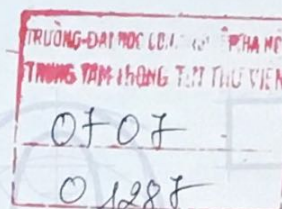 TRƯỜNG-ĐẠI HỌC HÀ NỘ
TRUNG TÂM THÔNG TIN THƯ VIỆN
0707
01287